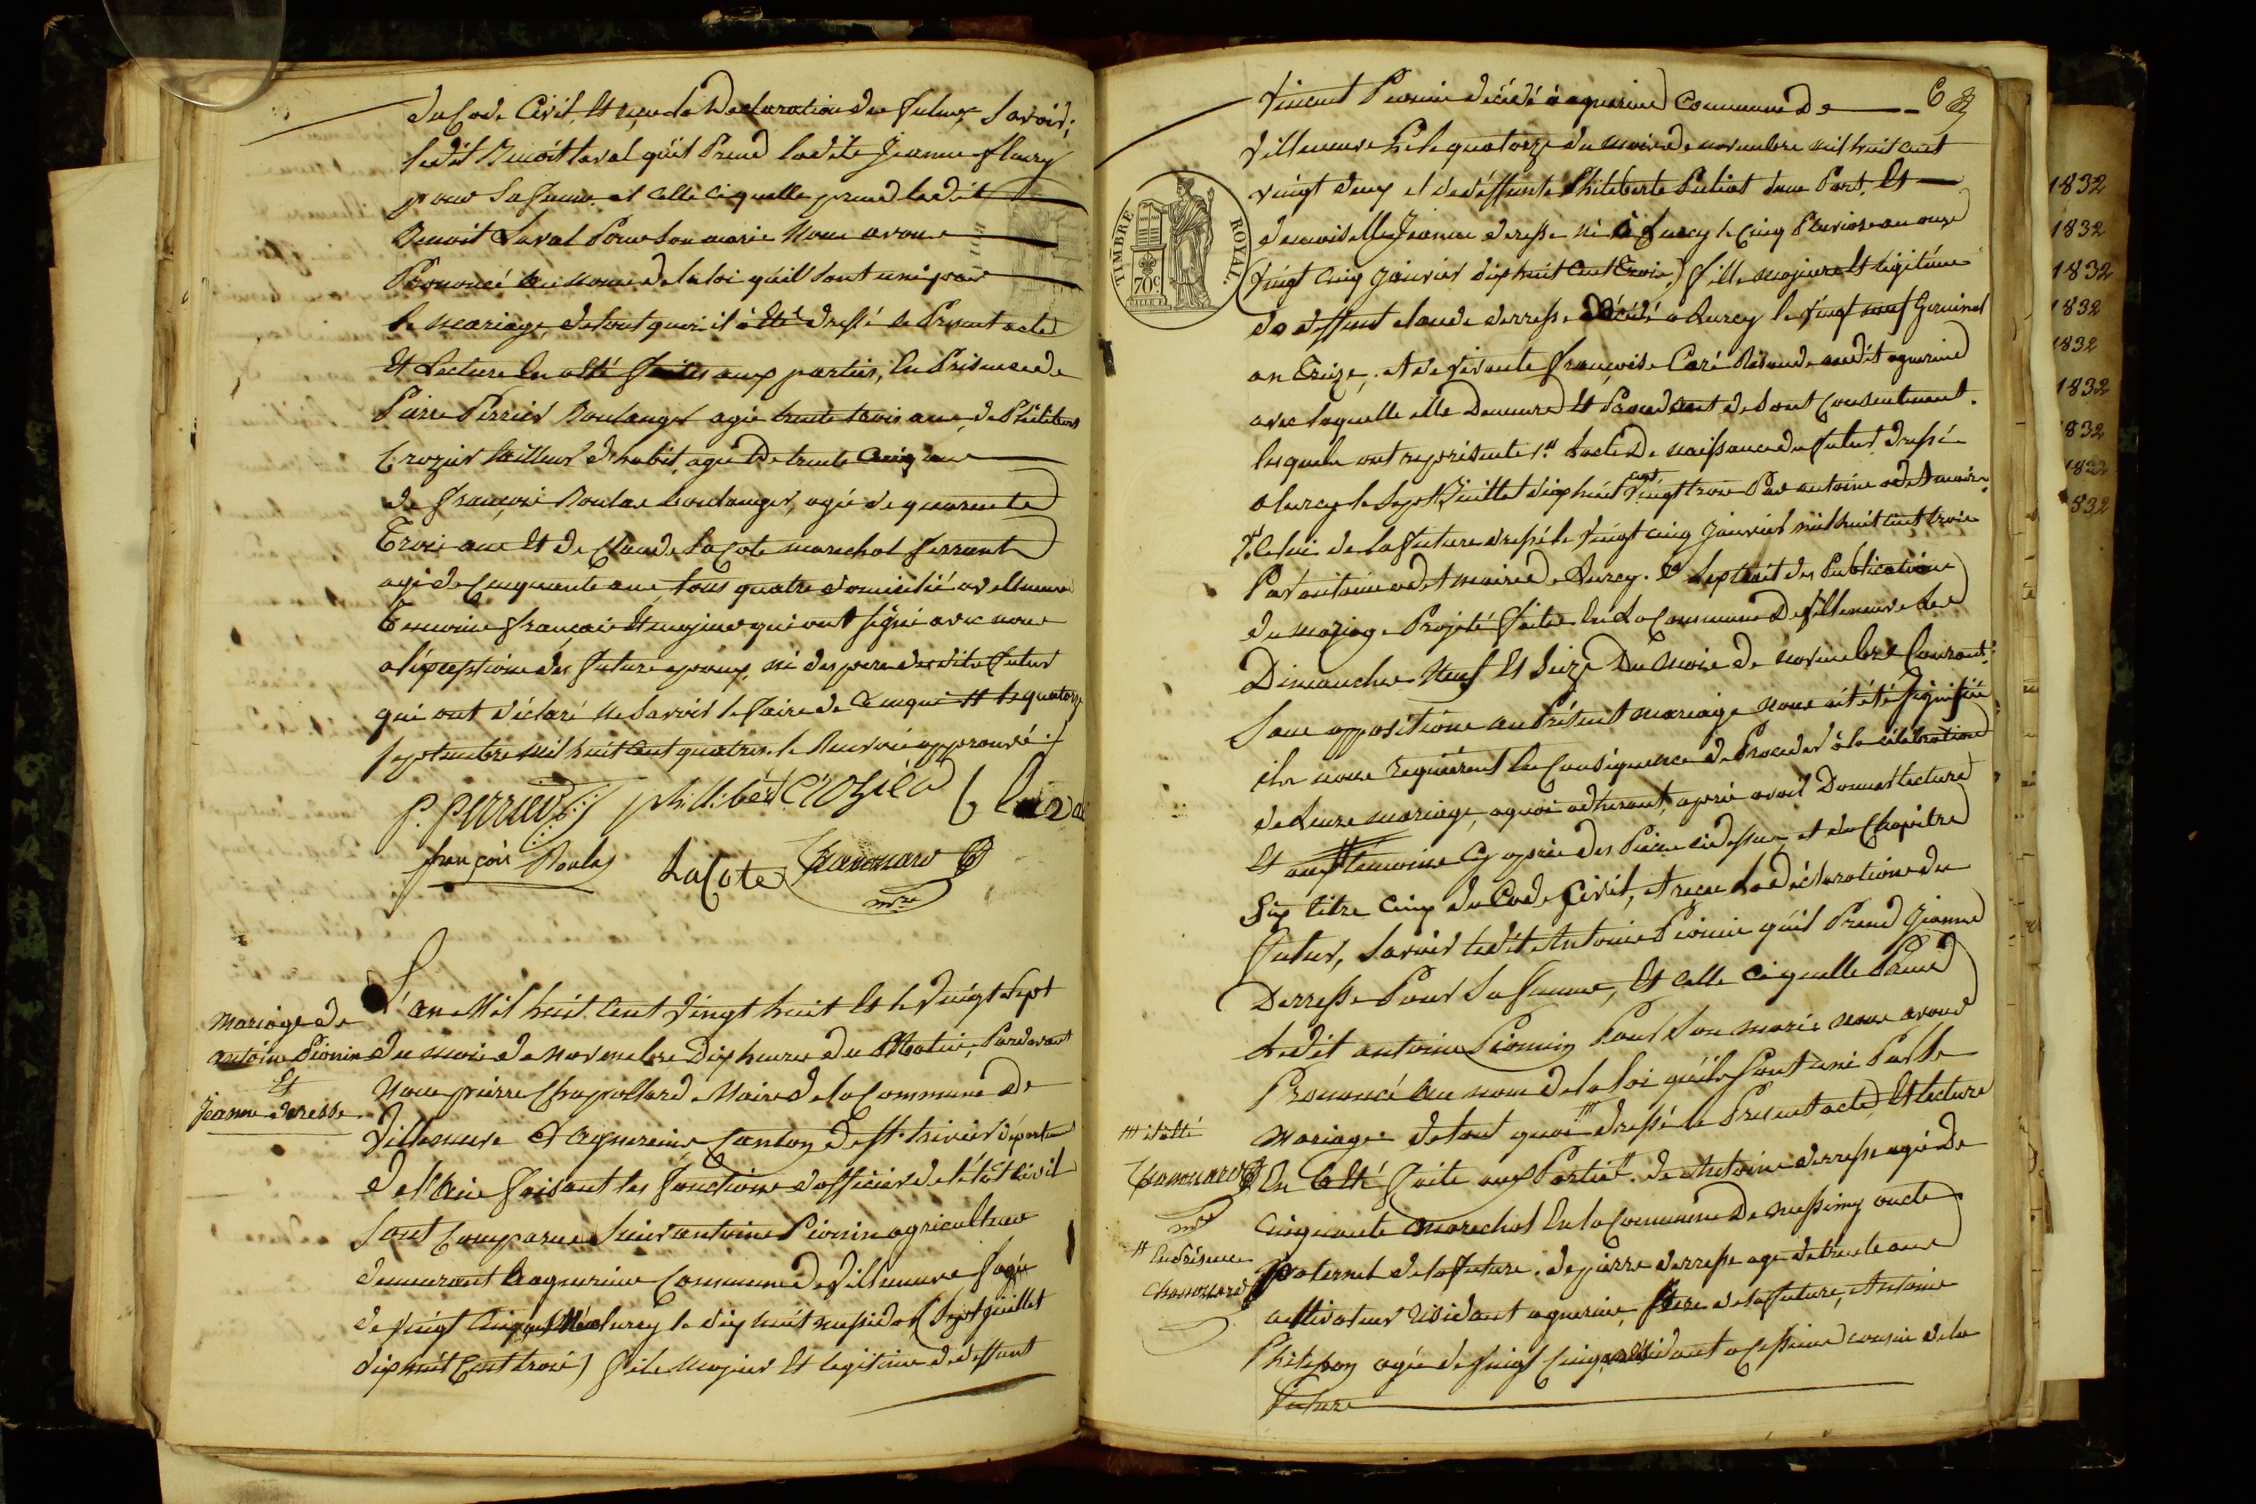 du Code Civil Et reçu la Declaration des futurs, Savoir;
ledit Benoit Laval qu'il Prend ladite Jeanne fleury
pour Sa femme, et celle ci quelle prend ledit
Benoit Laval Pour Son marie Nous avons
Prononcé Au nom de la loi qu'ils sont unis par
le mariage, de tout quoi il à Eté dressé le Present acte
Et Lecture En a Eté faites aux parties, En Présence de
Pierre Perrier Boulanger agé de trente trois ans, de Philibert
Crozier tailleur d'habit, agé De trente Cinq ans
de françois Boulas boulanger, agé de quarante
Trois ans Et de Claude LaCote marechal ferrant
agé de Cinquante ans, tous quatre domicilié a villeneuve
Temoins français Et majeurs qui ont signé avec nous
a l'exception des futurs epoux, ni des peres desdits futurs
qui ont déclaré ne Savoir le faire de Ce enquis
septembre mil huit Cent quatres. le Renvoie approuvé
P. Perrier philibert Crozier
françois Boulas LaCote Chanouard
mre
Mariage de
antoine Pionin
Et
Jeanne deresse
L'an Mil huit Cent Vingt huit Et le Vingt Sept
du mois de Novembre Dix heures du Matin, Pardevant
Nous pierre Chapollard Maire de la Commune De
Villeneuve Et Agnereins Canton De St. trivier departement
De l'Ain faisant les fonctions d'officier de l'état Civil
Sont Comparus Sieur antoine Pionin agriculteur
demeurant a agnereins Commune De Villeneuve agé
de Vingt Cinq ans Né a lurcy le dix huit messidor (Sept juillet
dix huit Cent trois) fils Majeur Et legitime de deffunt
6
TIMBRE ROYAL.
70c
Vincent Pionin décédé à agnereins Commune De
Villeneuve le quatorze du mois de novembre mil huit cent
vingt deux et de deffunte Philiberte Puliat d'une Part, Et
demoiselle Jeanne deresse né à Lurcy le Cinq Pluviose an onze
(vingt cinq Janvier dix huit Cent Trois) fille majeure Et légitime
de deffunt claude derresse décédé a Lurcy le Vingt neuf Germinal
an Treize, et de Vivante françoise Caré Résidante audit agnereins
avec laquelle elle Demeure Et Procedant de Son Consentement.
lesquels ont representé 1° l'acte De naissance du futur dressé
a lurcy le Sept Juillet dix huit cent Vingt trois Par antoine odet maire
2° Celui de la future dressé le Vingt cinq Janvier mil huit cent trois
Par antoine odet maire de Lurcy. 3° l'extrait des Publications
du mariage Projeté faites En La Commune De Villeneuve les
Dimanches Neuf Et Seize Du Mois de novembre Courant.
Sans oppositions au Présent mariage Nous ait été signifiée
ils nous requièrent En Conséquence de Procéder à la célébration
de Leurs mariage, a quoi adherant, après avoir Donner lecture
Et aux temoins Cy après des Pièces ci dessus, et du Chapitre
Six titre Cinq du Code Civil, et reçu la Déclaration des
futurs, Savoir ledit Antoine Pionin qu'il Prend Jeanne
Derresse Pour Sa femme, Et Celle Ci quelle Prend
Ledit antoine Pionin Pour Son marie nous avons
Prononcé Au nom de la Loi qu'ils Sont unis Par le
Mariage. de tout quoi dressé le Present acte Et lecture
En a Eté faite aux Parties. de Antoine derresse agé De
Cinquante marechal En la Commune De messimy oncle
paternel de la future. de pierre derresse agé de trente ans
cultivateur Résidant agnereins, frere de la future, Antoine
Philibon agé de Vingt Cinq ans Résidant a Cessieins cousin de la
future
il a été
Chanouard
mre
En présence
Chanouard
1832
1832
1832
1832
1832
1832
832
1832
832